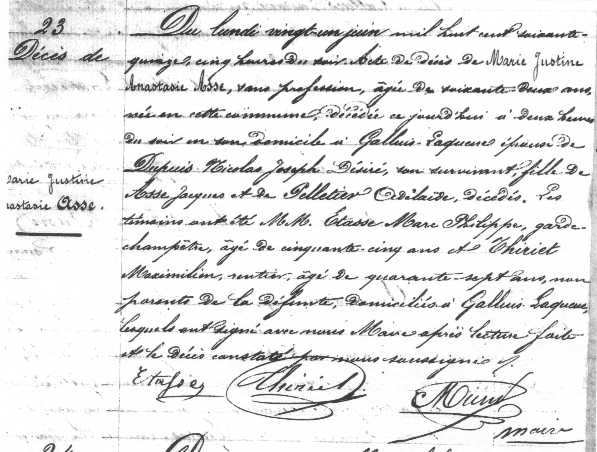 23
Décès de
Marie Justine
Anastasie Asse.
Du lundi vingt-un juin mil huit cent soixante-
quinze, cinq heures du soir. Acte de décès de Marie Justine
Anastasie Asse, sans profession, âgée de soixante-deux ans,
née en cette commune, décédée ce jourd'hui à deux heures
du soir en son domicile à Galluis-Laqueue épouse de
Dupuis Nicolas Joseph Désiré, son survivant, fille de
Asse Jacques et de Pelletier Adélaide, décédés. Les
témoins ont été M.M. Etasse Marc Philippe, garde-
champêtre, âgé de cinquante-cinq ans et Thiriet
Maximilien, rentier, âgé de quarante-sept ans, non
parents de la défunte, domiciliés à Galluis Laqueue,
lesquels ont signé avec nous Maire après lecture faite
et le décès constaté par nous soussigné.
Etasse
Thiriet
maire